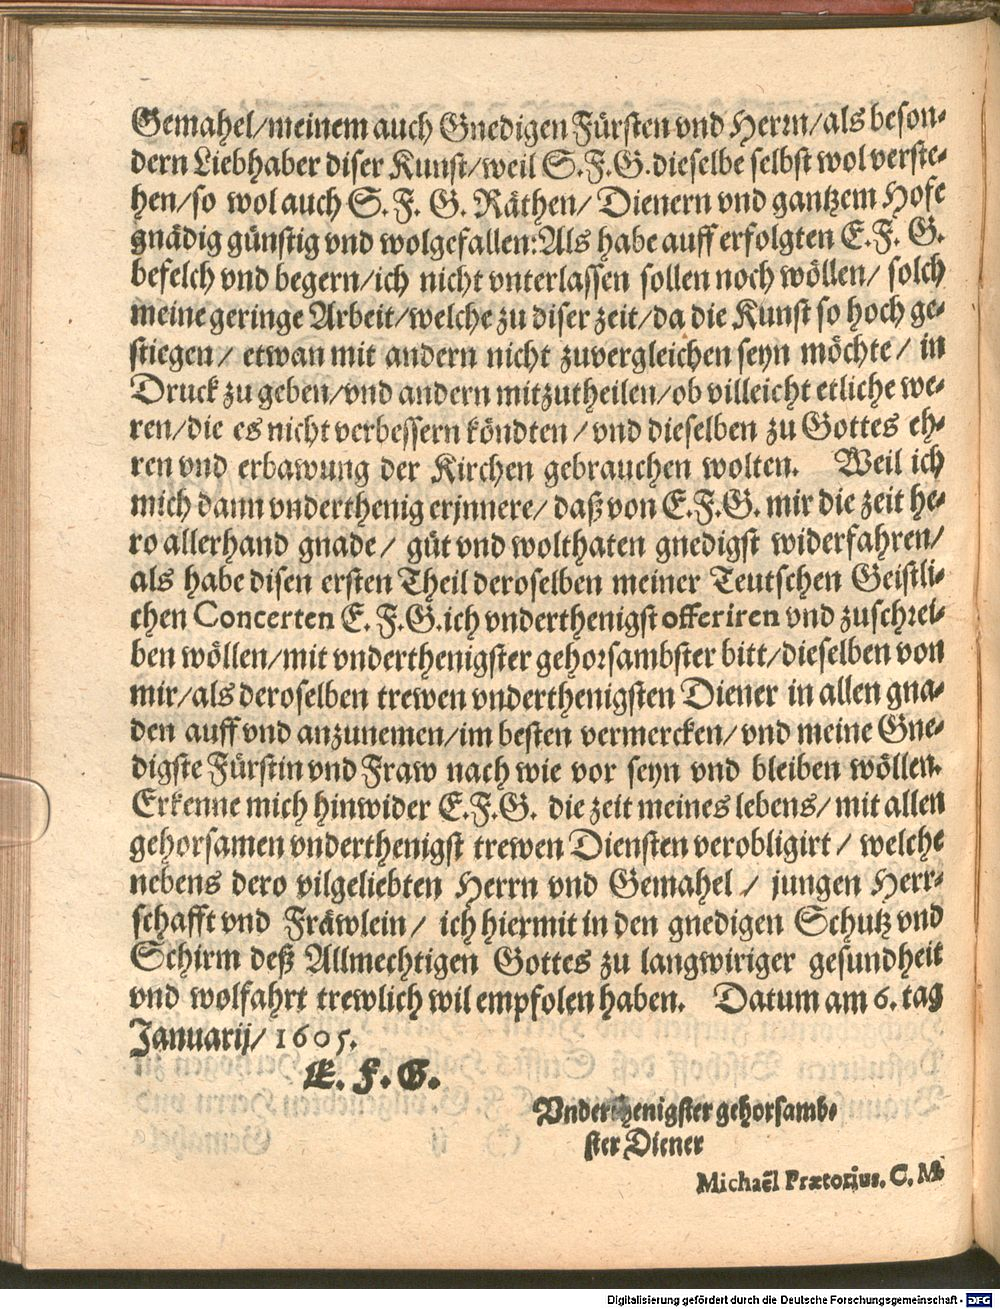 Gemahel/meinem auch Gnedigen Fürsten vnd Herrn/als beson-
dern Liebhaber diser Kunst/weil S.F.G. dieselbe selbst wol verste-
hen/so wol auch S. F. G. Räthen/ Dienern vnd gantzem Hofe
gnädig günstig vnd wolgefallen: Als habe auff erfolgten E.F. G.
befelch vnd begern/ich nicht vnterlassen sollen noch wöllen/ solch
meine geringe Arbeit/welche zu diser zeit/da die Kunst so hoch ge-
stiegen/ etwan mit andern nicht zuvergleichen seyn möchte/ in
Druck zu geben/vnd andern mitzutheilen/ob villeicht etliche we-
ren/die es nicht verbessern köndten/vnd dieselben zu Gottes eh-
ren vnd erbawung der Kirchen gebrauchen wolten. Weil ich
mich dann vnderthenig erjnnere/ daß von E.F.G. mir die zeit he-
ro allerhand gnade/ güt vnd wolthaten gnedigst widerfahren/
als habe disen ersten Theil deroselben meiner Teutschen Geistli-
chen Concerten E. F.G. ich vnderthenigst offeriren vnd zuschrei-
ben wöllen/mit vnderthenigster gehorsambster bitt/dieselben von
mir/als deroselben trewen vnderthenigsten Diener in allen gna-
den auff vnd anzunemen/im besten vermercken/ vnd meine Gne-
digste Fürstin vnd Fraw nach wie vor seyn vnd bleiben wöllen.
Erkenne mich hinwider E.F.G. die zeit meines lebens/ mit allen
gehorsamen vnderthenigst trewen Diensten verobligirt/ welche
nebens dero vilgeliebten Herrn vnd Gemahel/ jungen Herr-
schafft vnd Fräwlein/ ich hiermit in den gnedigen Schutz vnd
Schirm deß Allmechtigen Gottes zu langwiriger gesundheit
vnd wolfahrt trewlich wil empfolen haben. Datum am 6. tag
Januarij/ 1605.
E. F. G.
Vnderthenigster gehorsamb-
ster Diener
Michaël Prætorius. C. M.
Digitalisierung gefördert durch die Deutsche Forschungsgemeinschaft - DFG